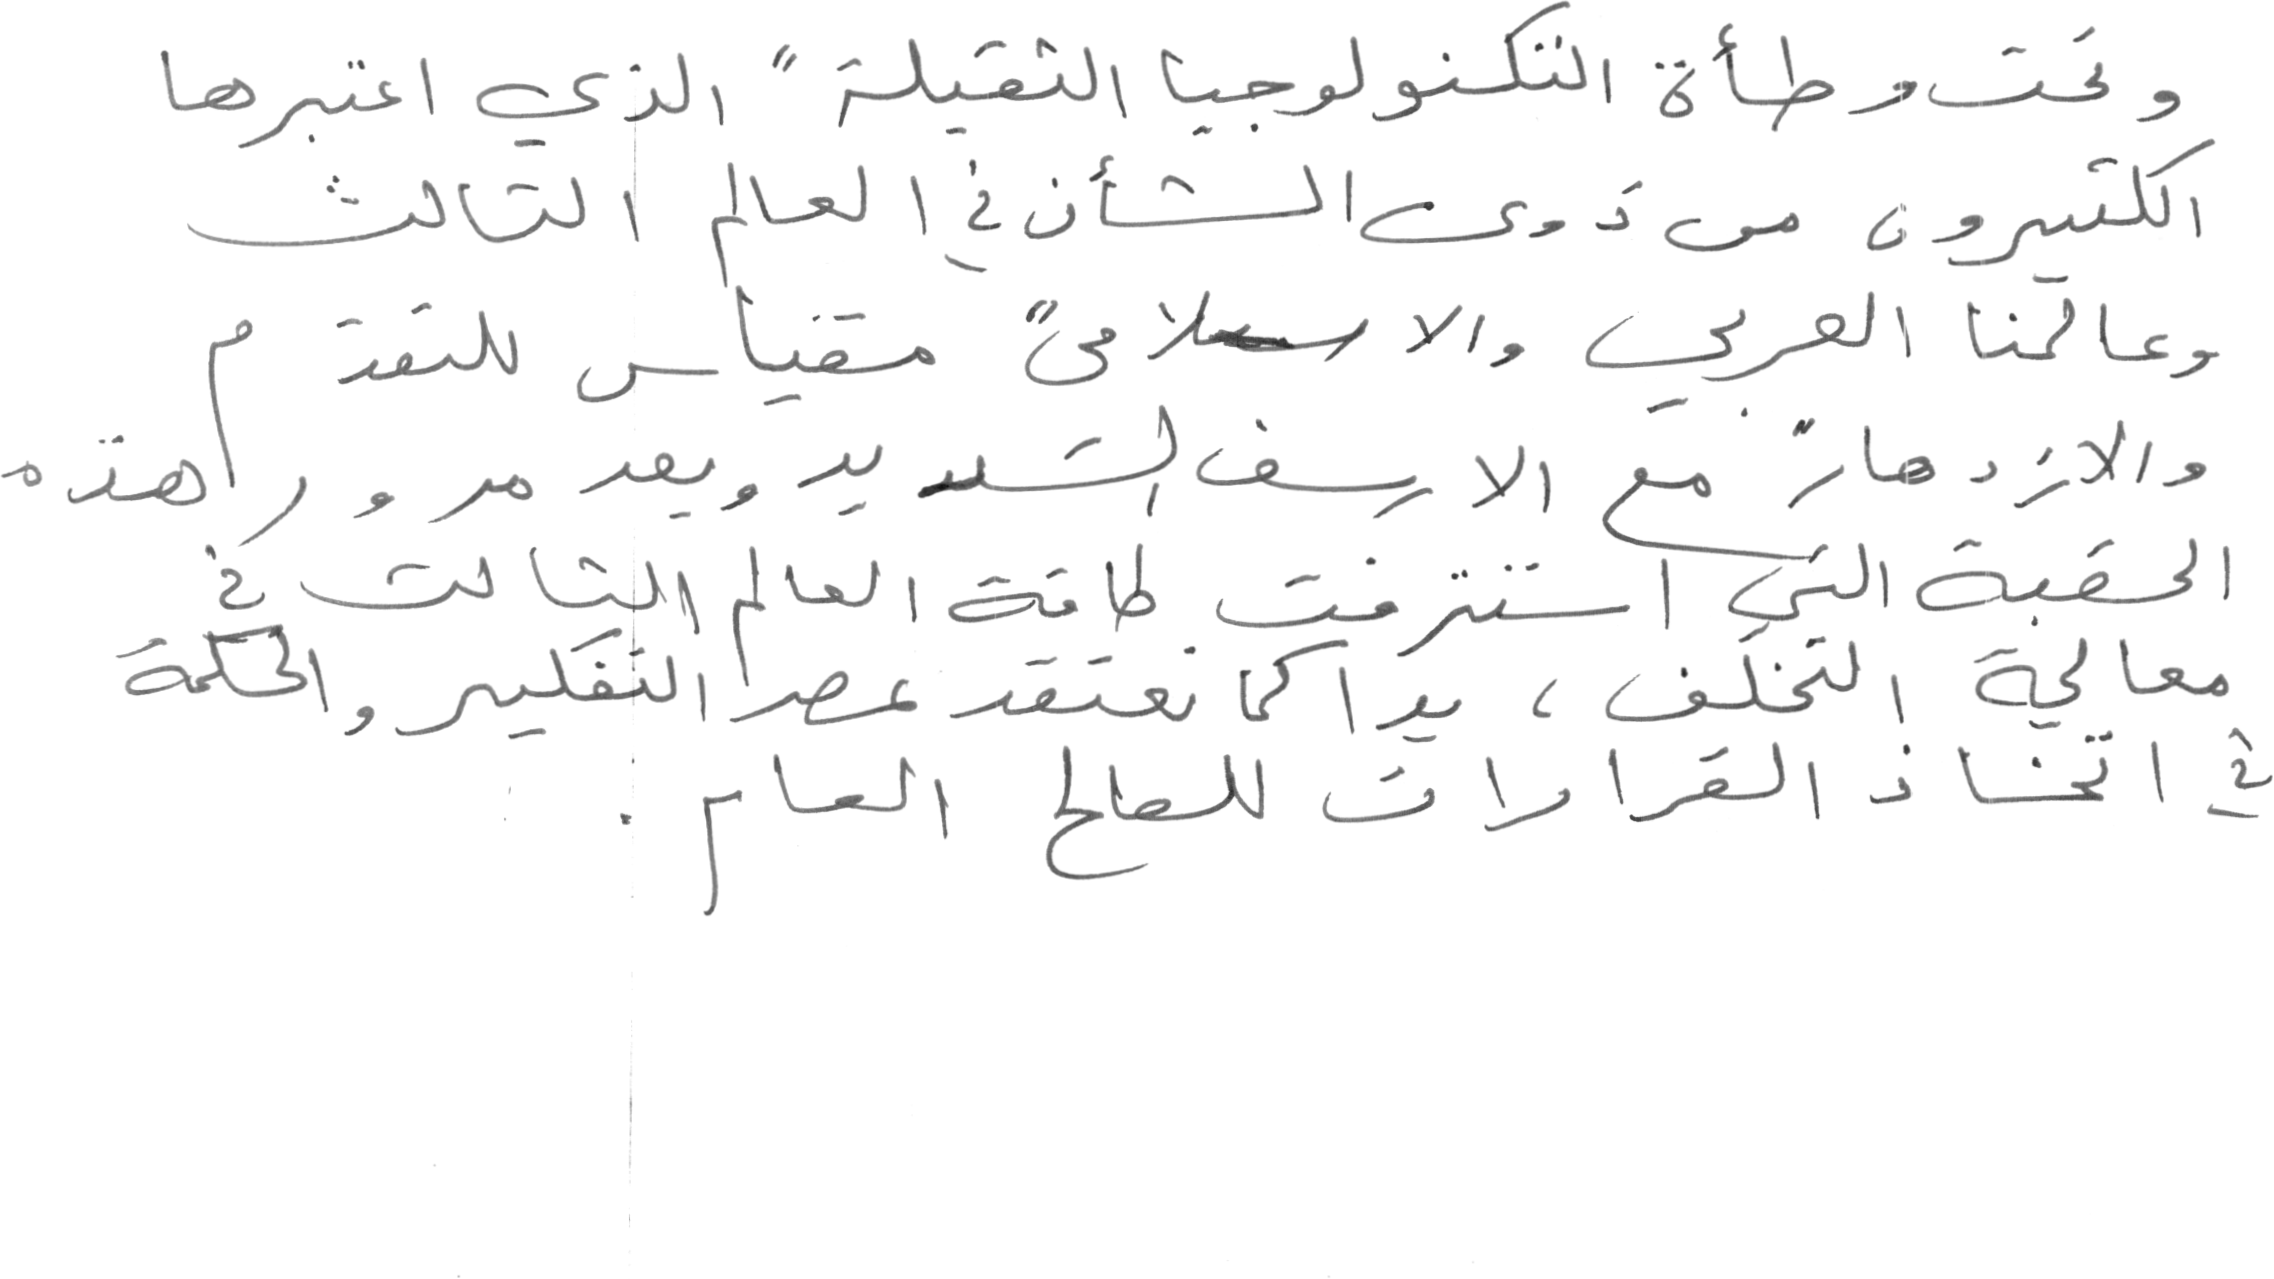 وتحت وطأة التكنولوجيا الثقيلة" الذي اعتبرها
الكثيرون من ذوى الشأن في العالم الثالث
وعالمنا العربي والاسلامى" مقياس للتقدم
والازدهار" مع الاسف الشديد وبعد مرور هذه
الحقبة التي استنزفت طاقة العالم الثالث في
معالجة التخلف، بدا كما نعتقد عصر التفكير والحكمة
في اتخاذ القرارات للصالح العام.